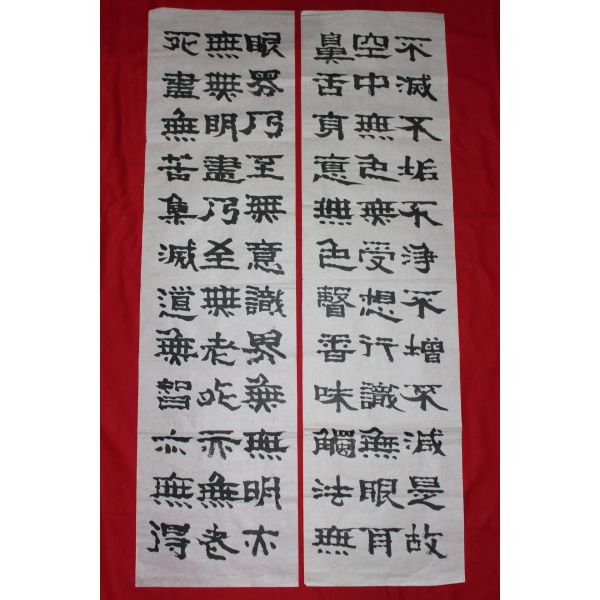 不滅不垢不淨不增不減是故
空中無色無受想行識無眼耳
鼻舌身意無色聲香味觸法無
眼界乃至無意識界無無明亦
無無明盡乃至無老死亦無老
死盡無苦集滅道無智亦無得